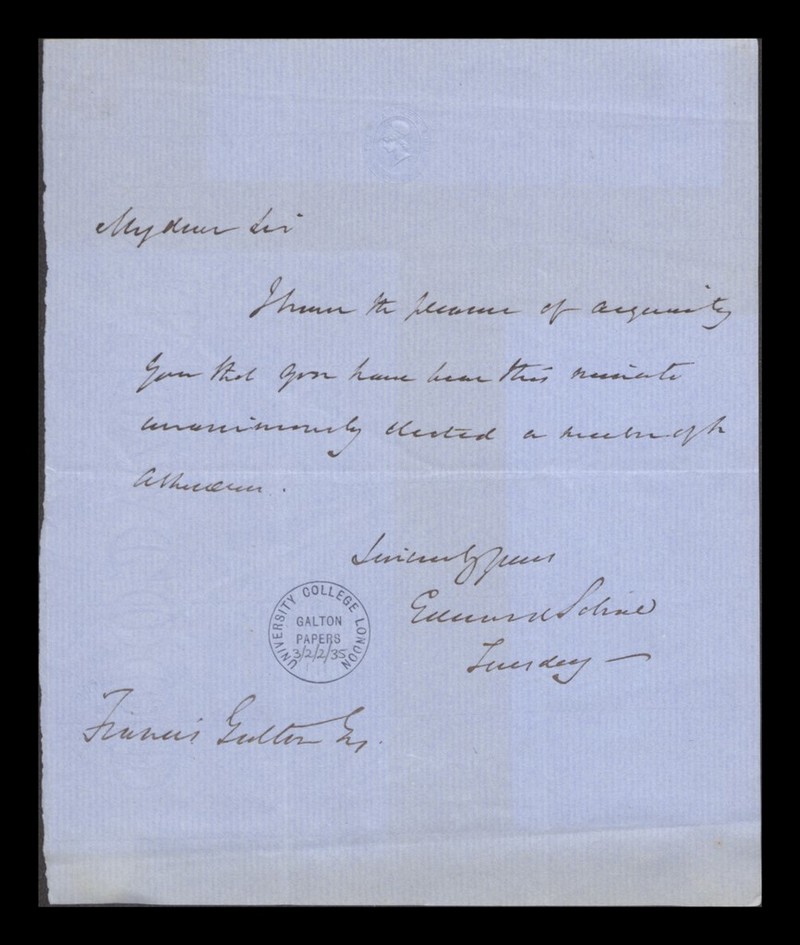 My dear Sir
I have the pleasure of acquainting
you that you have been this minute
unanimously elected a member of the
Athenæum.
Sincerely yours
Edward
Tuesday —
UNIVERSITY COLLEGE LONDON
GALTON
PAPERS
3/2/2/35
Francis Galton Esq.